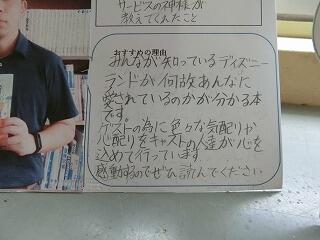 サービスの神様が
教えてくれたこと
おすすめの理由
みんなが知っているディズニー
ランドが何故あんなに
愛されているのかが分かる本
です。
ゲストの為に色々な気配りや
心配りをキャストの人達が心を
込めて行っています
感動するのでぜひ読んでください